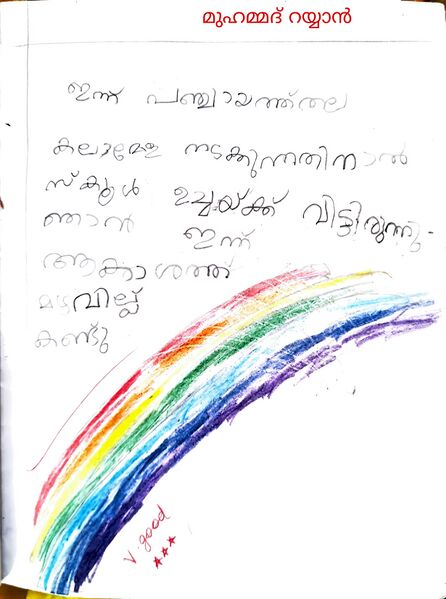 മുഹമ്മദ് റയ്യാൻ
ഇന്ന് പഞ്ചായത്ത്തല
കലാമേള നടക്കുന്നതിനാൽ
സ്കൂൾ ഉച്ചയ്ക്ക് വിട്ടിരുന്നു.
ഞാൻ ഇന്ന്
ആകാശത്ത്
മഴവില്ല്
കണ്ടു
V. good